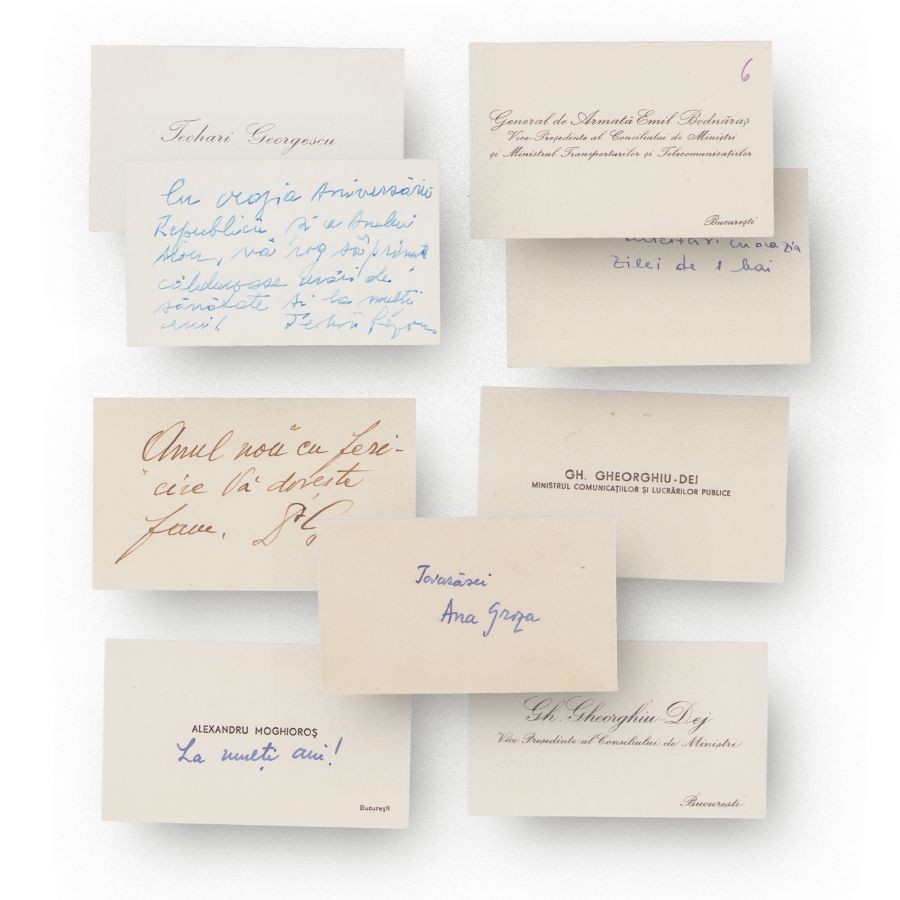 Teohari Georgescu
Cu ocazia Aniversării
Republicii și a Anului
Nou, vă rog să primiți
călduroase urări de
sănătate și la mulți
ani! Teohari
6
General de Armată Emil Bodnăraș
Vice-Președinte al Consiliului de Miniștri
și Ministrul Transporturilor și Telecomunicațiilor
București
zilei de 1 Mai
Anul nou cu feri-
cire Vă dorește
GH. GHEORGHIU-DEJ
MINISTRUL COMUNICAȚIILOR ȘI LUCRĂRILOR PUBLICE
Tovarășei
Ana Groza
ALEXANDRU MOGHIOROȘ
La mulți ani!
București
Gh. Gheorghiu-Dej
Vice Președinte al Consiliului de Miniștri
București